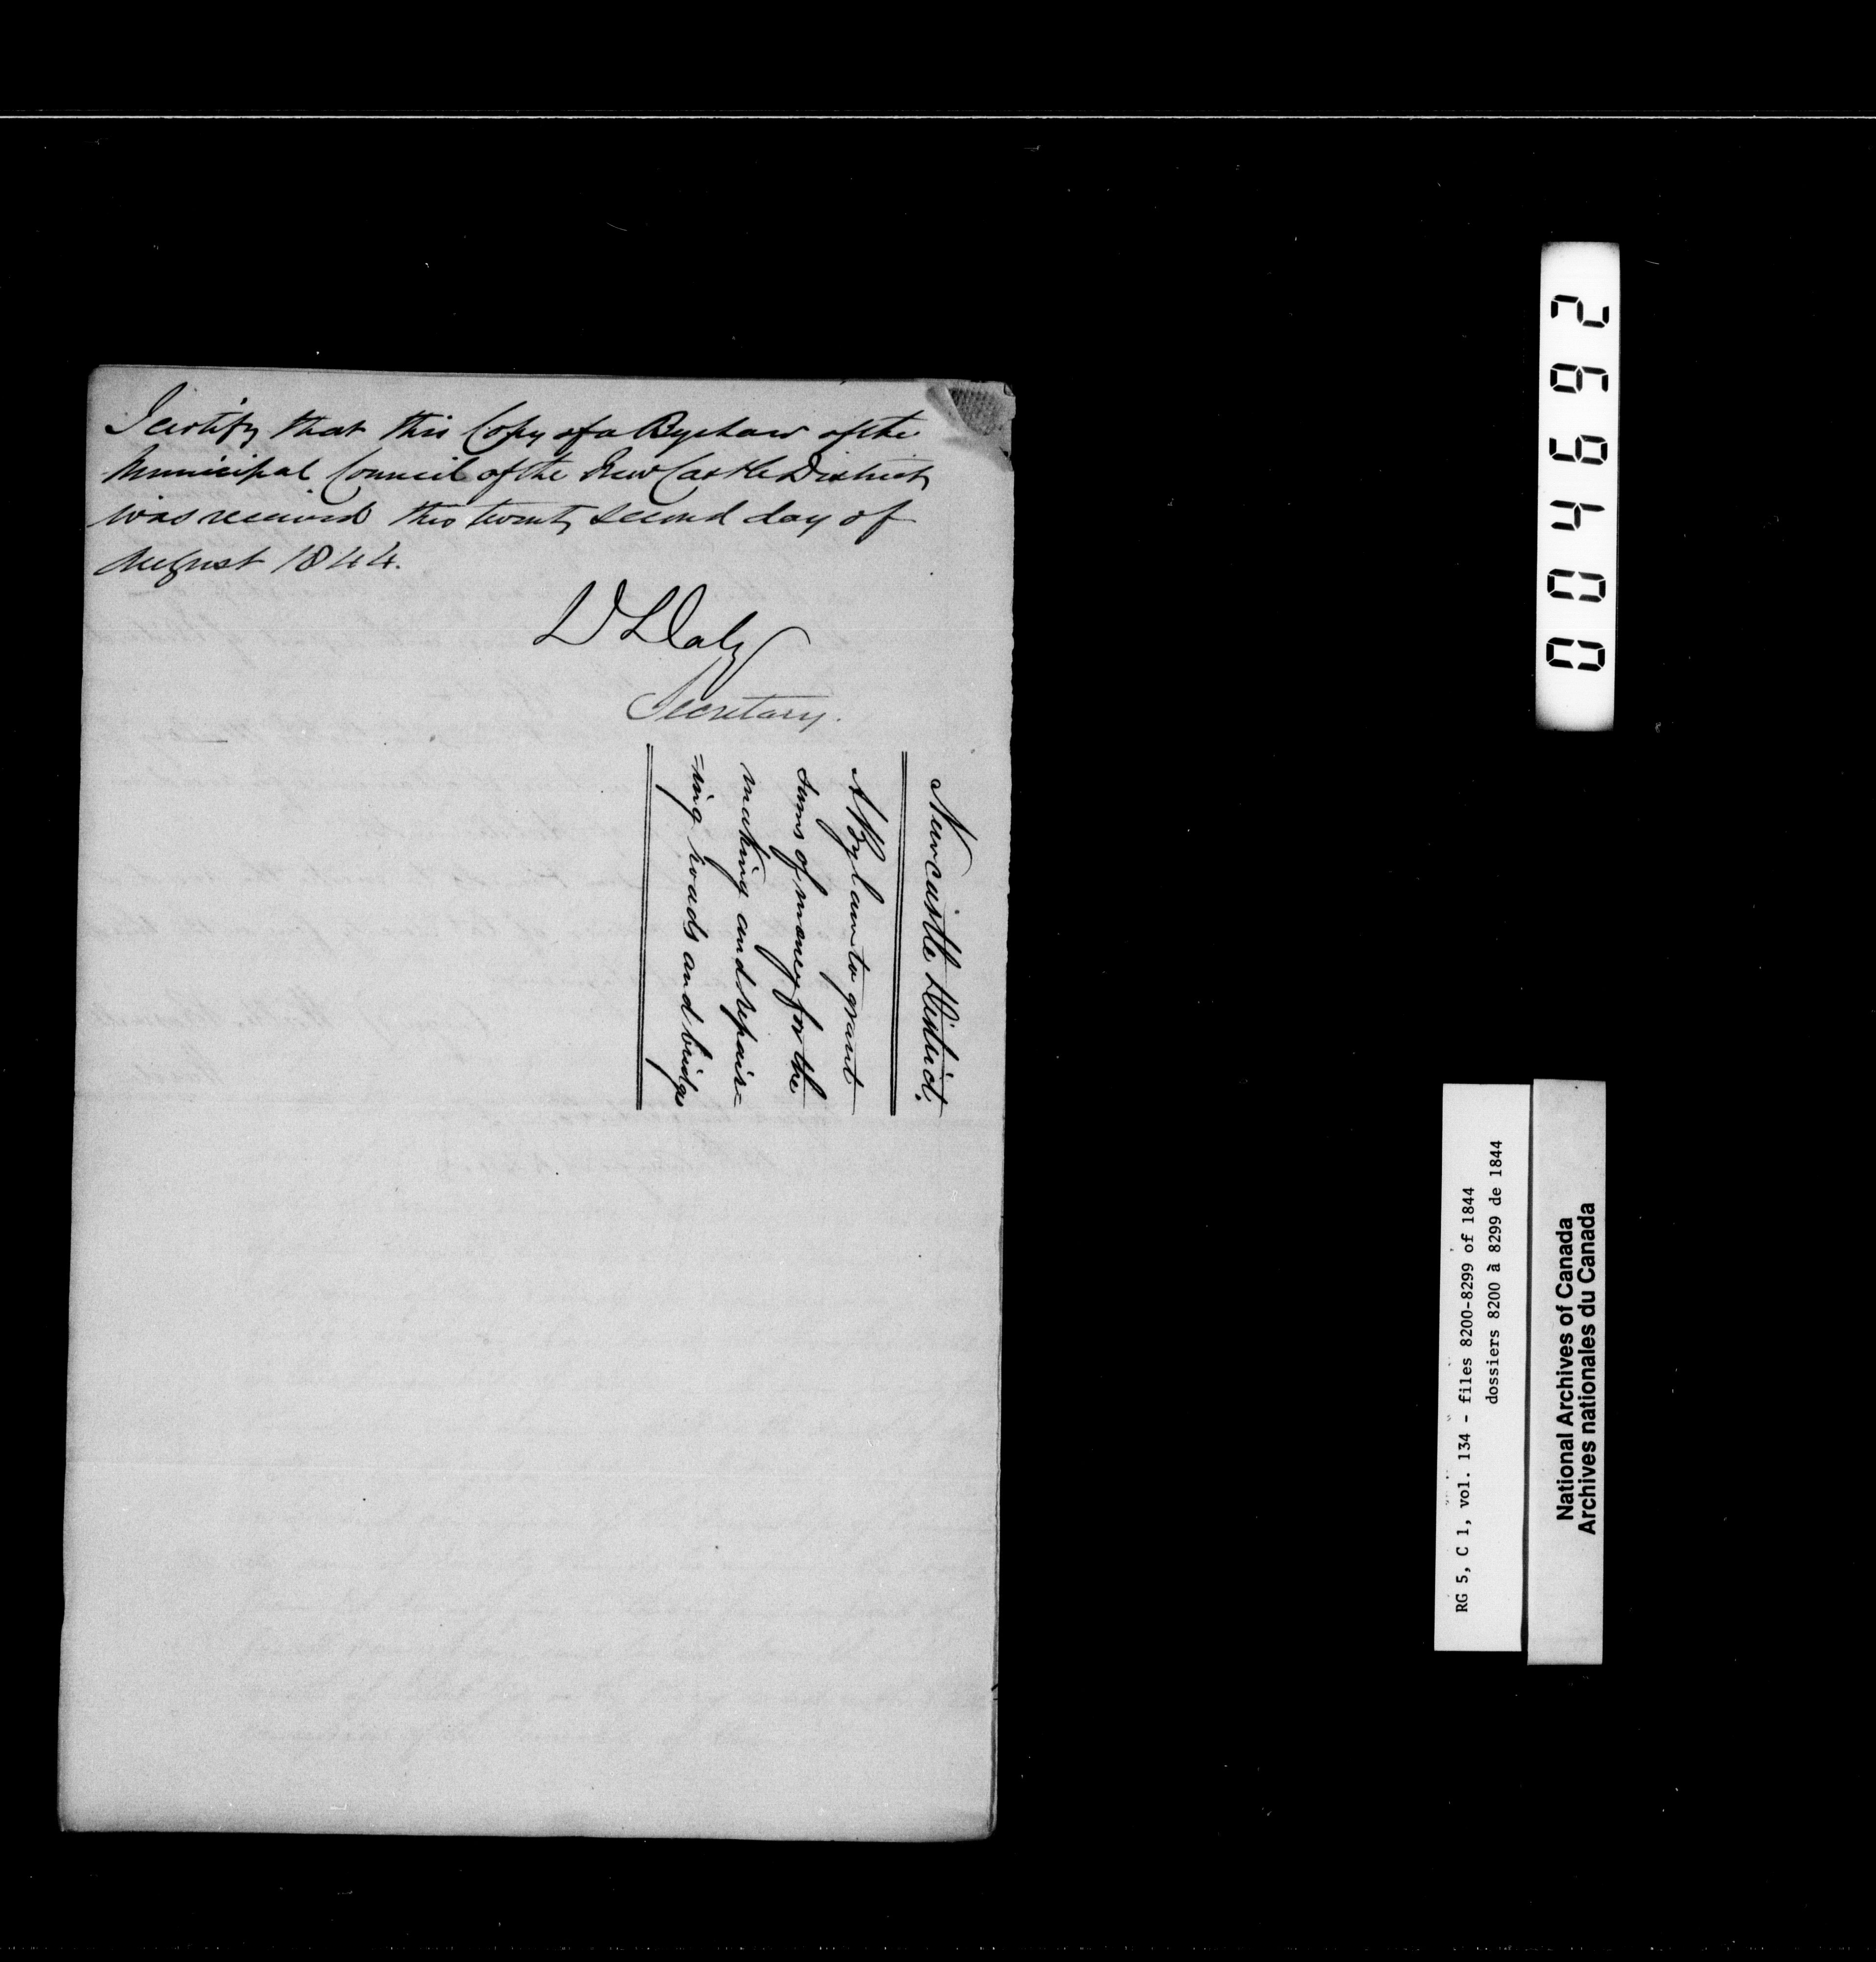 I certify that this Copy of a Bye Law of the
Municipal Council of the New Castle District
was received this twenty second day of
August 1844.
D Daly
Secretary.
Newcastle District.
A Bylaw to grant
sums of money for the
making and repair=
=ing roads and bridges
004692
RG 5, C 1, vol. 134 - files 8200-8299 of 1844
dossiers 8200 à 8299 de 1844
National Archives of Canada
Archives nationales du Canada